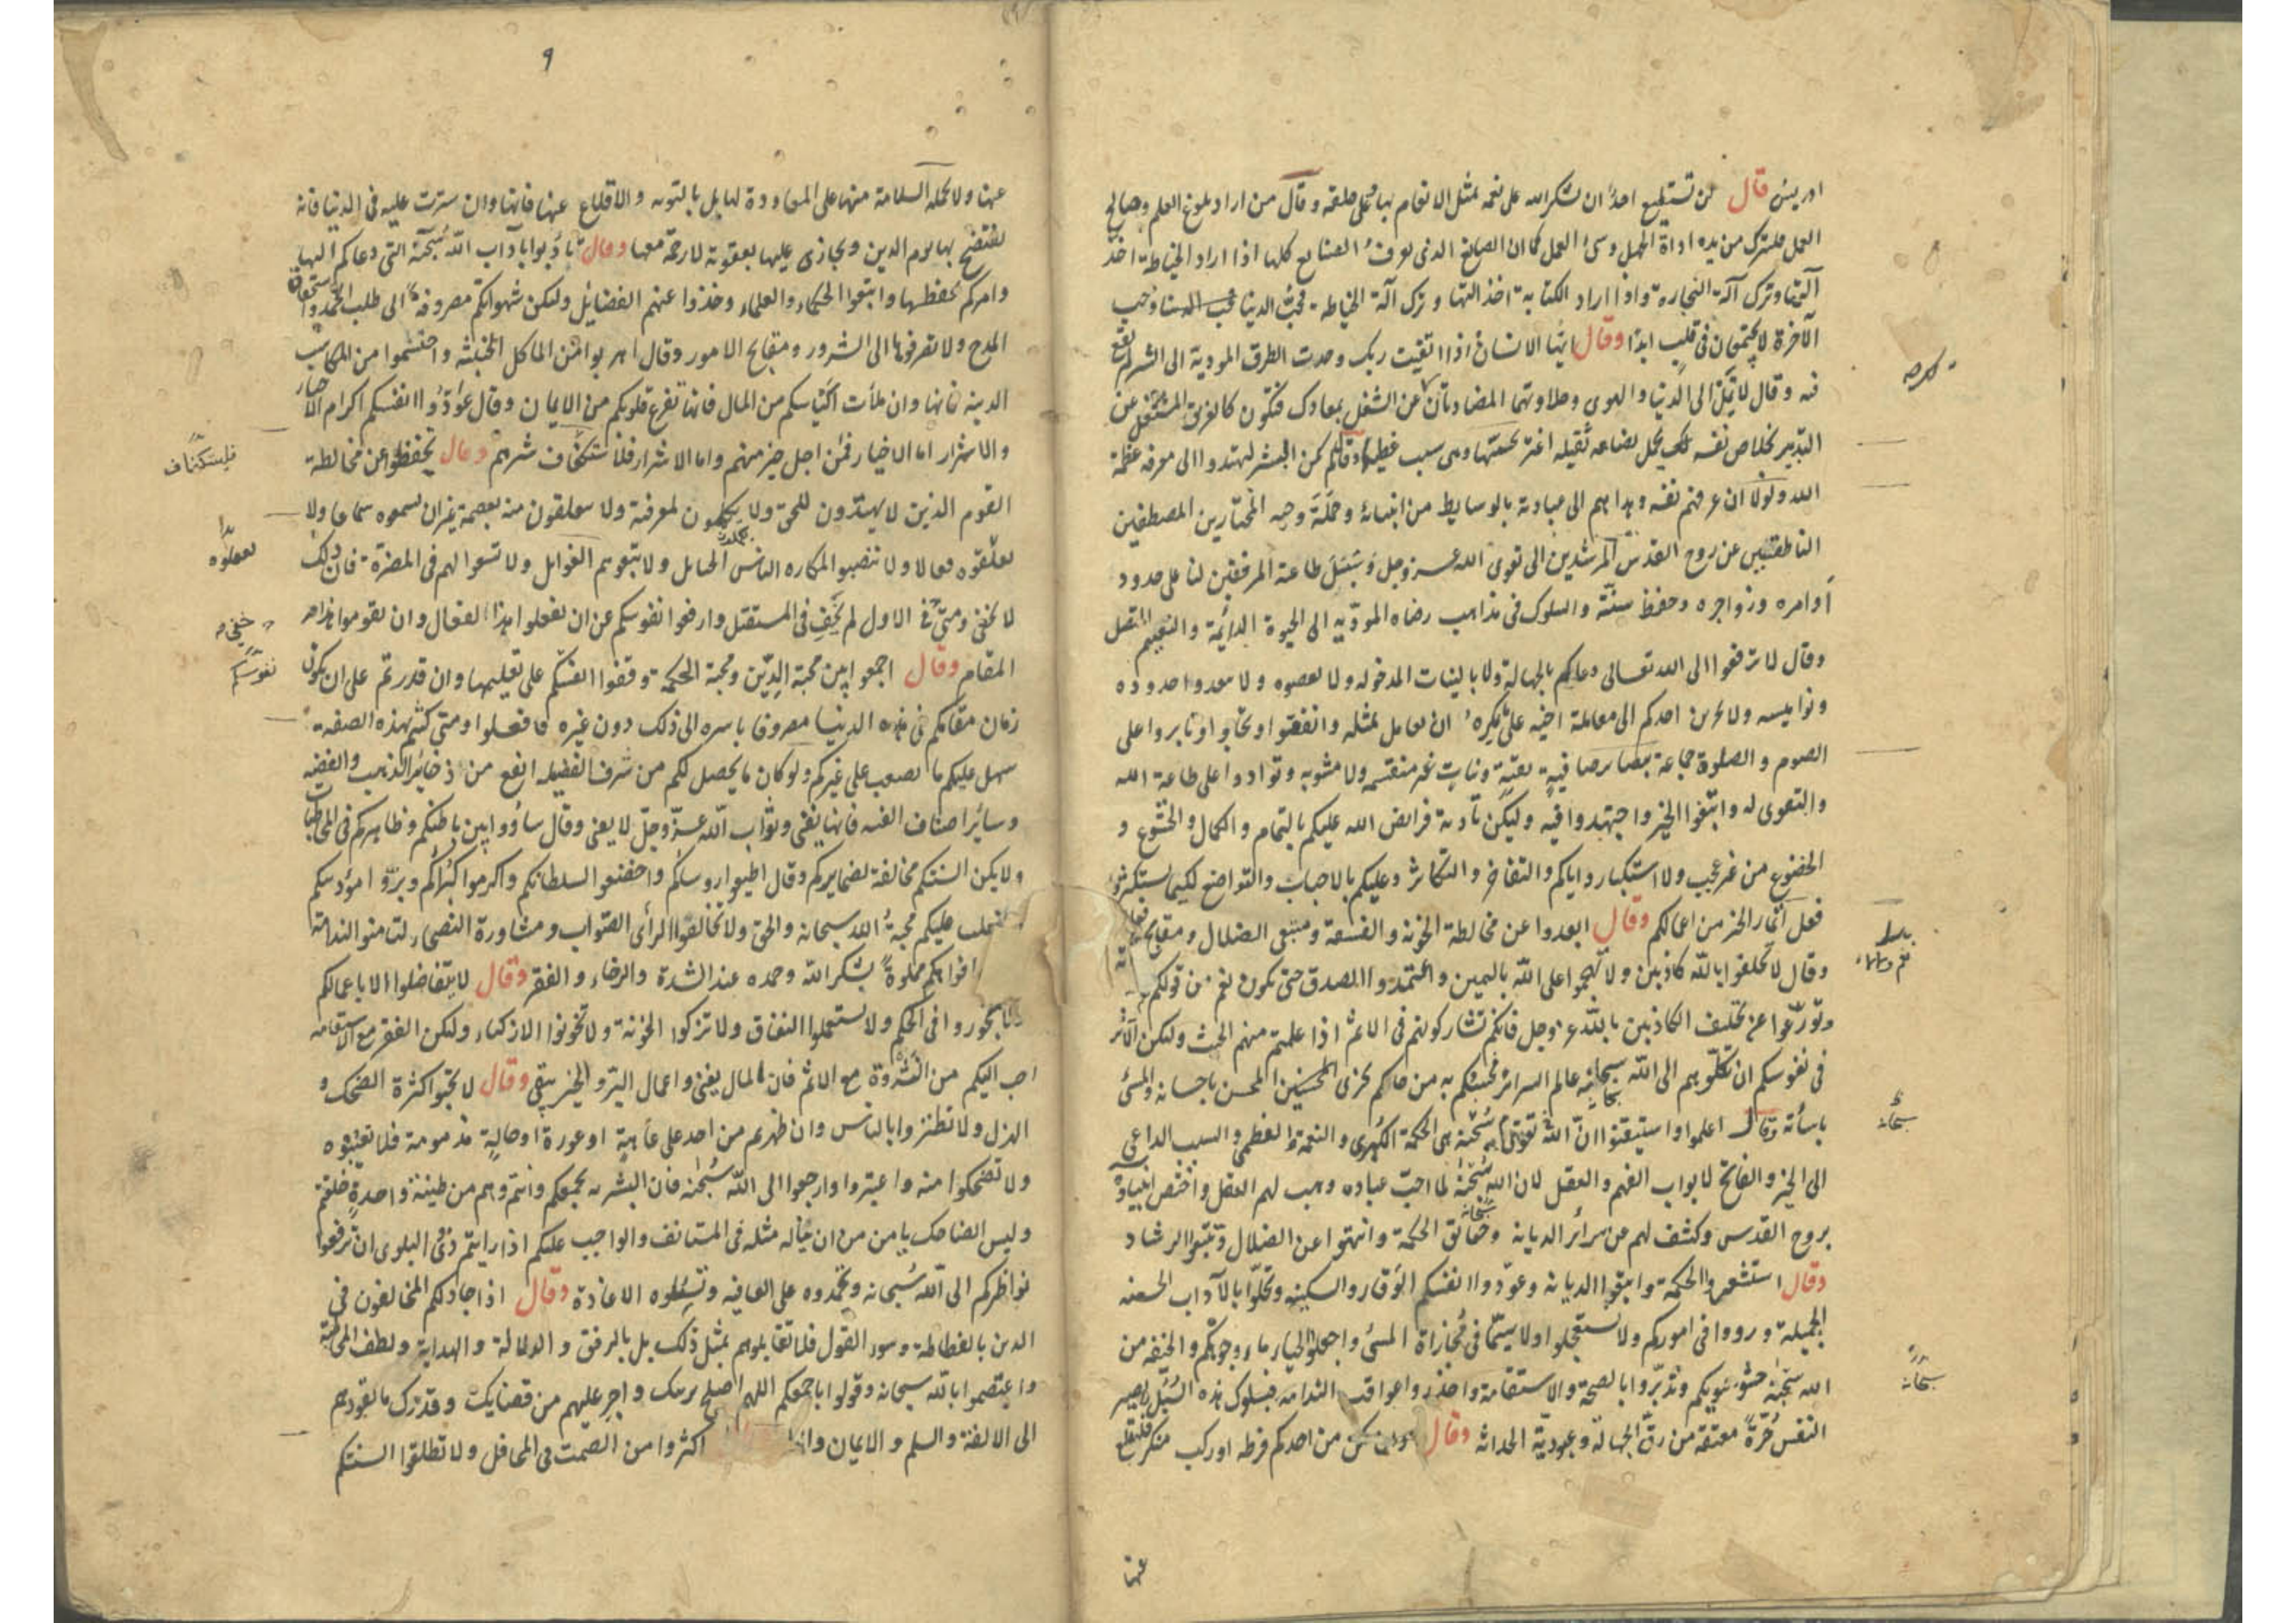 ادريس قال لن تستطيع احدٌ ان يشكر الله على نعمه بمثل الانعام بها على خلقه وقال من اراد بلوغ العلم وصالح
العمل فليترك من يده اداة الجهل وسئ العمل كما ان الصانع الذى يعرف الصنايع كلها اذا اراد الخياطة اخذ
آلتها وترك آلة النجارة واذا اراد الكتابة اخذ آلتها وترك آلة الخياطة فحبّ الدنيا وحب
الآخرة لا يجتمعان فى قلب ابدًا وقال ايها الانسان اذا اتقيت ربك وحدت الطرق المودية الى الشر لم تقع
فيه وقال لا تمل الى الدنيا والهوى وحلاوتهما عن الشغل بمعادك فتكون كالغرق المشتغل عن
التدبير لخلاص نفسه بحمل بضاعه ثقيله اغتر بحسنها وهى سبب وقال لم يكن البشر ليهتدوا الى معرفة عظمة
الله ولولا ان عرفهم نفسه وهداهم الى عبادته بالوسايط من انبيائه وحملة وحيه المختارين المصطفين
الناطقين عن روح القدس المرشدين الى تقوى الله عز وجل طاعته الموفقين لنا على حدود
أوامره وزواجره وحفظ سننه والسلوك فى مذاهب رضاه المودّيه الى الحيوة الدائمة والنعيم المتصل
وقال لا ترفعوا الى الله تعالى دعاكم بالجهالة ولا بالنيات المدخوله ولا تعصوه ولا تتعدوا حدوده
ونواميسه ولا يجرين احدكم الى معاملة اخيه على ما يكره ان يعامل بمثله واتفقوا وتحابوا وثابروا على
الصوم والصلوة جماعة ببصاير صافية نقية ونيات غير منقسمه ولا مشوبه وتوادوا على طاعة الله
والتقوى له وابتغوا الخير واجتهدوا فيه وليكن تأدية فرايض الله عليكم بالتمام والكمال والخشوع و
الخضوع من غير عجب ولا استكبار واياكم والتفاخر والتكاثر وعليكم بالاخبات والتواضع لكيما تستكثروا
اثمار الخير من اعمالكم وقال ابعدوا عن مخالطة الخونه والفسقة ومتبعى الضلال
وقال لا تحلفوا بالله كاذبين ولا تهجموا على الله باليمين واعتمدوا الصدق حتى تكون نعم من قولكم
وتورّعوا عن تحليف الكاذبين بالله عز وجل فانكم تشاركونهم فى الاثم اذا علمتم منهم الحنث وليكن الآثر
فى نفوسكم ان تكلوهم الى الله سبحانه عالم السراير فحسبكم به من حاكم يجزى المحسن باحسانه والمسئ
باسأته وقال اعلموا واستيقنوا ان تقوى الله سبحنه هى الحكمة الكبرى والنعمة العظمى والسبب الداعى
الى الخير والفاتح لابواب الفهم والعقل لان الله سبحنه لما احبّ عباده وهب لهم العقل واختص انبياءه
بروح القدس وكشف لهم عن سراير الديانة وحقايق الحكمة وانتهوا عن الضلال وتتبعوا الرشاد
وقال استشعروا الحكمة وابتغوا الديانة وعوّدوا انفسكم الوقار والسكينه وتحلّوا بالآداب الحسنه
الجميلة ورووا فى اموركم ولا تستعجلوا ولا سيّما فى مجازاة المسئ واجعلوا الحياء ماء وجوهكم والخيفه من
الله سبحنه حشو وتدبّروا بالصحة والاستقامة واحذروا عواقب الندامه فبسلوك هذه السبل يصير
النفس حرّةً معتقة من رقّ الجهالة وعبوديّة الحداثه وقال من احدكم فرطه او ركب منكر فليقلع
عنها
تكره
يسلط
نعم ولا لاء
سبحانه
سبحانه
٩
عنها ولا تحمله السلامة منها على المعاودة لها بل بالتوبه والاقلاع عنها فانها وان سترت عليه فى الدنيا فانه
يفتضح بها يوم الدين ويجازى عليها بعقوبة لا رحمة معها وقال تأدّبوا بآداب الله سبحنه التى دعاكم اليها
وامركم بحفظها واتبعوا الحكماء والعلماء وخذوا عنهم الفضايل ولتكن شهواتكم مصروفة الى طلب المحمدة واستحقاق
المدح ولا تصرفوها الى الشرور ومقابح الامور وقال اهربوا من المآكل الخبيثه واحتشموا من المكاسب
الدنيه فانها وان ملأت اكياسكم من المال فانها تفرغ قلوبكم من الايمان وقال عوّدوا انفسكم اكرام الاخيار
والاشرار اما الاخيار فمن اجل خيرهم واما الاشرار فلاستكفاف شرهم وقال تحفظوا عن مخالطة
القوم الذين لا يهتدون للحق ولا لمعرفته ولا يتعلقون منه بعصمة غير ان يسمعوه سماعا ولا
فعالا ولا تنصبوا المكاره للناس الحبايل ولا تبغوهم الغوايل ولا تسعوا لهم فى المضرة فان ذلك
لا يخفى ومتى خفى الاول لم يخف فى المستقبل وارفعوا نفوسكم عن ان تفعلوا هذا الفعال وان تقوموا هذا
المقام وقال اجمعوا بين محبة الدّين ومحبة الحكمة وقفوا انفسكم على تعليمها وان قدرتم على ان يكون
زمان مقامكم فى هذه الدنيا مصروفا باسره الى ذلك دون غيره فافعلوا ومتى كنتم بهذه الصفة
سهل عليكم ما يصعب على غيركم ولو كان ما يحصل لكم من شرف الفضيله انفع من ذخائر الذهب والفضه
وسائر اصناف القنيه فانها تفنى وثواب الله عزّ وجلّ لا يفنى وقال ساووا بين باطنكم وظاهركم فى المخاطبات
ولا يكن السنتكم مخالفة لضمايركم وقال اطيعوا روسائكم واخضعوا لسلطانكم واكرموا كبرائكم وبرّوا مؤدبيكم
عليكم محبة الله سبحانه والحق ولا تخالفوا الرأى الصّواب ومشاورة النصحاء لتامنوا الندامة
افواهكم مملوةً بشكر الله وحمده عند الشدة والرخاء والفقر وقال لا يتفاضلوا الا باعمالكم
تجوروا فى الحكم ولا تستعملوا النفاق ولا تزكوا الخونة ولا تخونوا الازكياء وليكن الفقر مع الاستقامه
احب اليكم من الثروة مع الاثم فان المال يفنى واعمال البرّ والخير يبقى وقال لا تحبوا كثرة الضحك و
الهزل ولا تطنزوا بالناس وان ظهر لكم من احد على عاهةٍ او عورة او حالةٍ مذمومة فلا تعيّبوه
ولا تضحكوا منه واعتبروا وارجعوا الى الله سبحنه فان البشريه تجمعكم وانتم وهم من طينة واحدةٍ خلقتم
وليس الضاحك بامن من ان يناله مثله فى المستانف والواجب عليكم اذا رايتم ذوى البلوى ان ترفعوا
نواظركم الى الله سبحانه وتحمدوه على العافيه وتسئلوه الاعاذة وقال اذا جادلكم المخالفون فى
الدين بالفظاظة وسوء القول فلا تقابلوهم بمثل ذلك بل بالرفق والدلالة والهداية ولطف المخاطبة
واعتصموا بالله سبحانه وقولوا باجمعكم اللهم اصلح بريتك واجر عليهم من قضايك وقدرك ما يقودهم
الى الالفة والسلم والايمان اكثروا من الصمت فى المحافل ولا تطلقوا السنتكم
فليستكفاف
خفى
نفوسكم